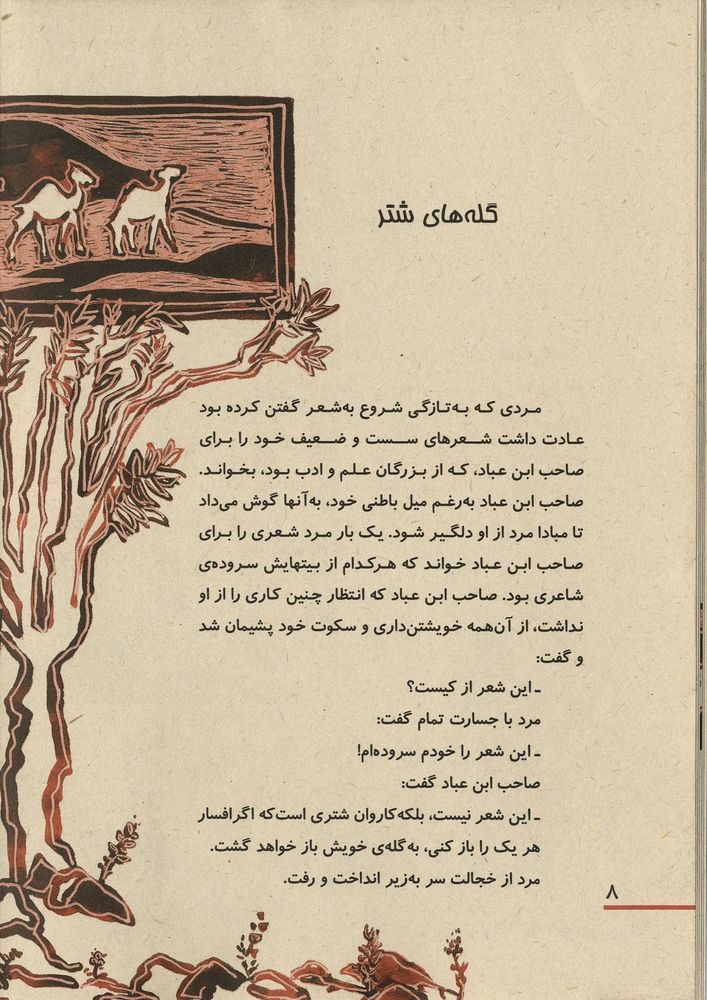 گله‌های شتر
مردی که به‌تازگی شروع به‌شعر گفتن کرده بود
عادت داشت شعرهای سست و ضعیف خود را برای
صاحب ابن عباد، که از بزرگان علم و ادب بود، بخواند.
صاحب ابن عباد به‌رغم میل باطنی خود، به‌آنها گوش می‌داد
تا مبادا مرد از او دلگیر شود. یک بار مرد شعری را برای
صاحب ابن عباد خواند که هرکدام از بیتهایش سروده‌ی
شاعری بود. صاحب ابن عباد که انتظار چنین کاری را از او
نداشت، از آن‌همه خویشتن‌داری و سکوت خود پشیمان شد
و گفت:
ـ این شعر از کیست؟
مرد با جسارت تمام گفت:
ـ این شعر را خودم سروده‌ام!
صاحب ابن عباد گفت:
ـ این شعر نیست، بلکه‌کاروان شتری است‌که اگرافسار
هر یک را باز کنی، به‌گله‌ی خویش باز خواهد گشت.
مرد از خجالت سر به‌زیر انداخت و رفت.
۸